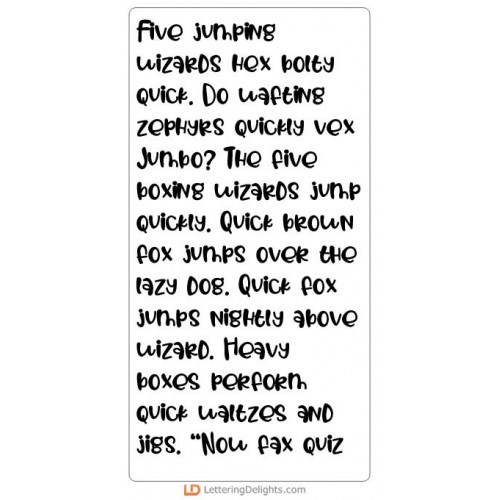 Five jumping
wizards hex bolty
quick. Do wafting
zephyrs quickly vex
Jumbo? The five
boxing wizards jump
quickly. Quick brown
fox jumps over the
lazy dog. Quick fox
jumps nightly above
wizard. Heavy
boxes perform
quick waltzes and
jigs. "Now fax quiz
LD LetteringDelights.com